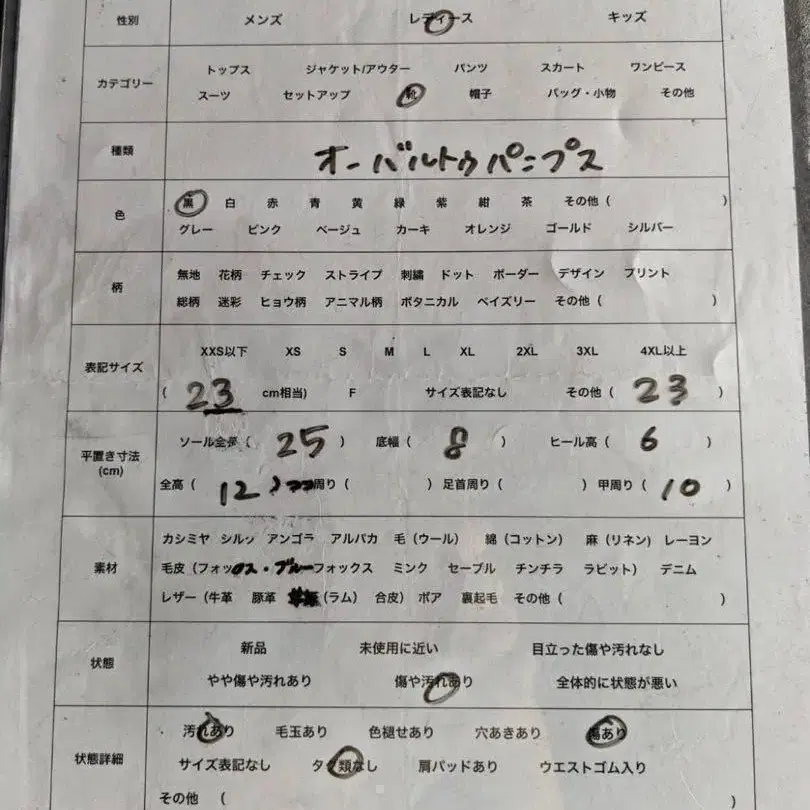 性別 メンズ レディース キッズ
カテゴリー
トップス ジャケット/アウター パンツ スカート ワンピース
スーツ セットアップ 靴 帽子 バッグ・小物 その他
種類 オーバルトゥパンプス
色
黒 白 赤 青 黄 緑 紫 紺 茶 その他 ( )
グレー ピンク ベージュ カーキ オレンジ ゴールド シルバー
柄
無地 花柄 チェック ストライプ 刺繍 ドット ボーダー デザイン プリント
総柄 迷彩 ヒョウ柄 アニマル柄 ボタニカル ペイズリー その他 ( )
表記サイズ
XXS以下 XS S M L XL 2XL 3XL 4XL以上
( 23 cm相当) F サイズ表記なし その他 ( 23 )
平置き寸法
(cm)
ソール全長 ( 25 ) 底幅 ( 8 ) ヒール高 ( 6 )
全高 ( 12 ) 周り ( ) 足首周り ( ) 甲周り ( 10 )
素材
カシミヤ シルク アンゴラ アルパカ 毛 (ウール) 綿 (コットン) 麻 (リネン) レーヨン
毛皮 (フォックス・ブルーフォックス ミンク セーブル チンチラ ラビット) デニム
レザー (牛革 豚革 (ラム) 合皮) ボア 裏起毛 その他 ( )
状態
新品 未使用に近い 目立った傷や汚れなし
やや傷や汚れあり 傷や汚れあり 全体的に状態が悪い
状態詳細
汚れあり 毛玉あり 色褪せあり 穴あきあり 傷あり
サイズ表記なし タグ類なし 肩パッドあり ウエストゴム入り
その他 ( )